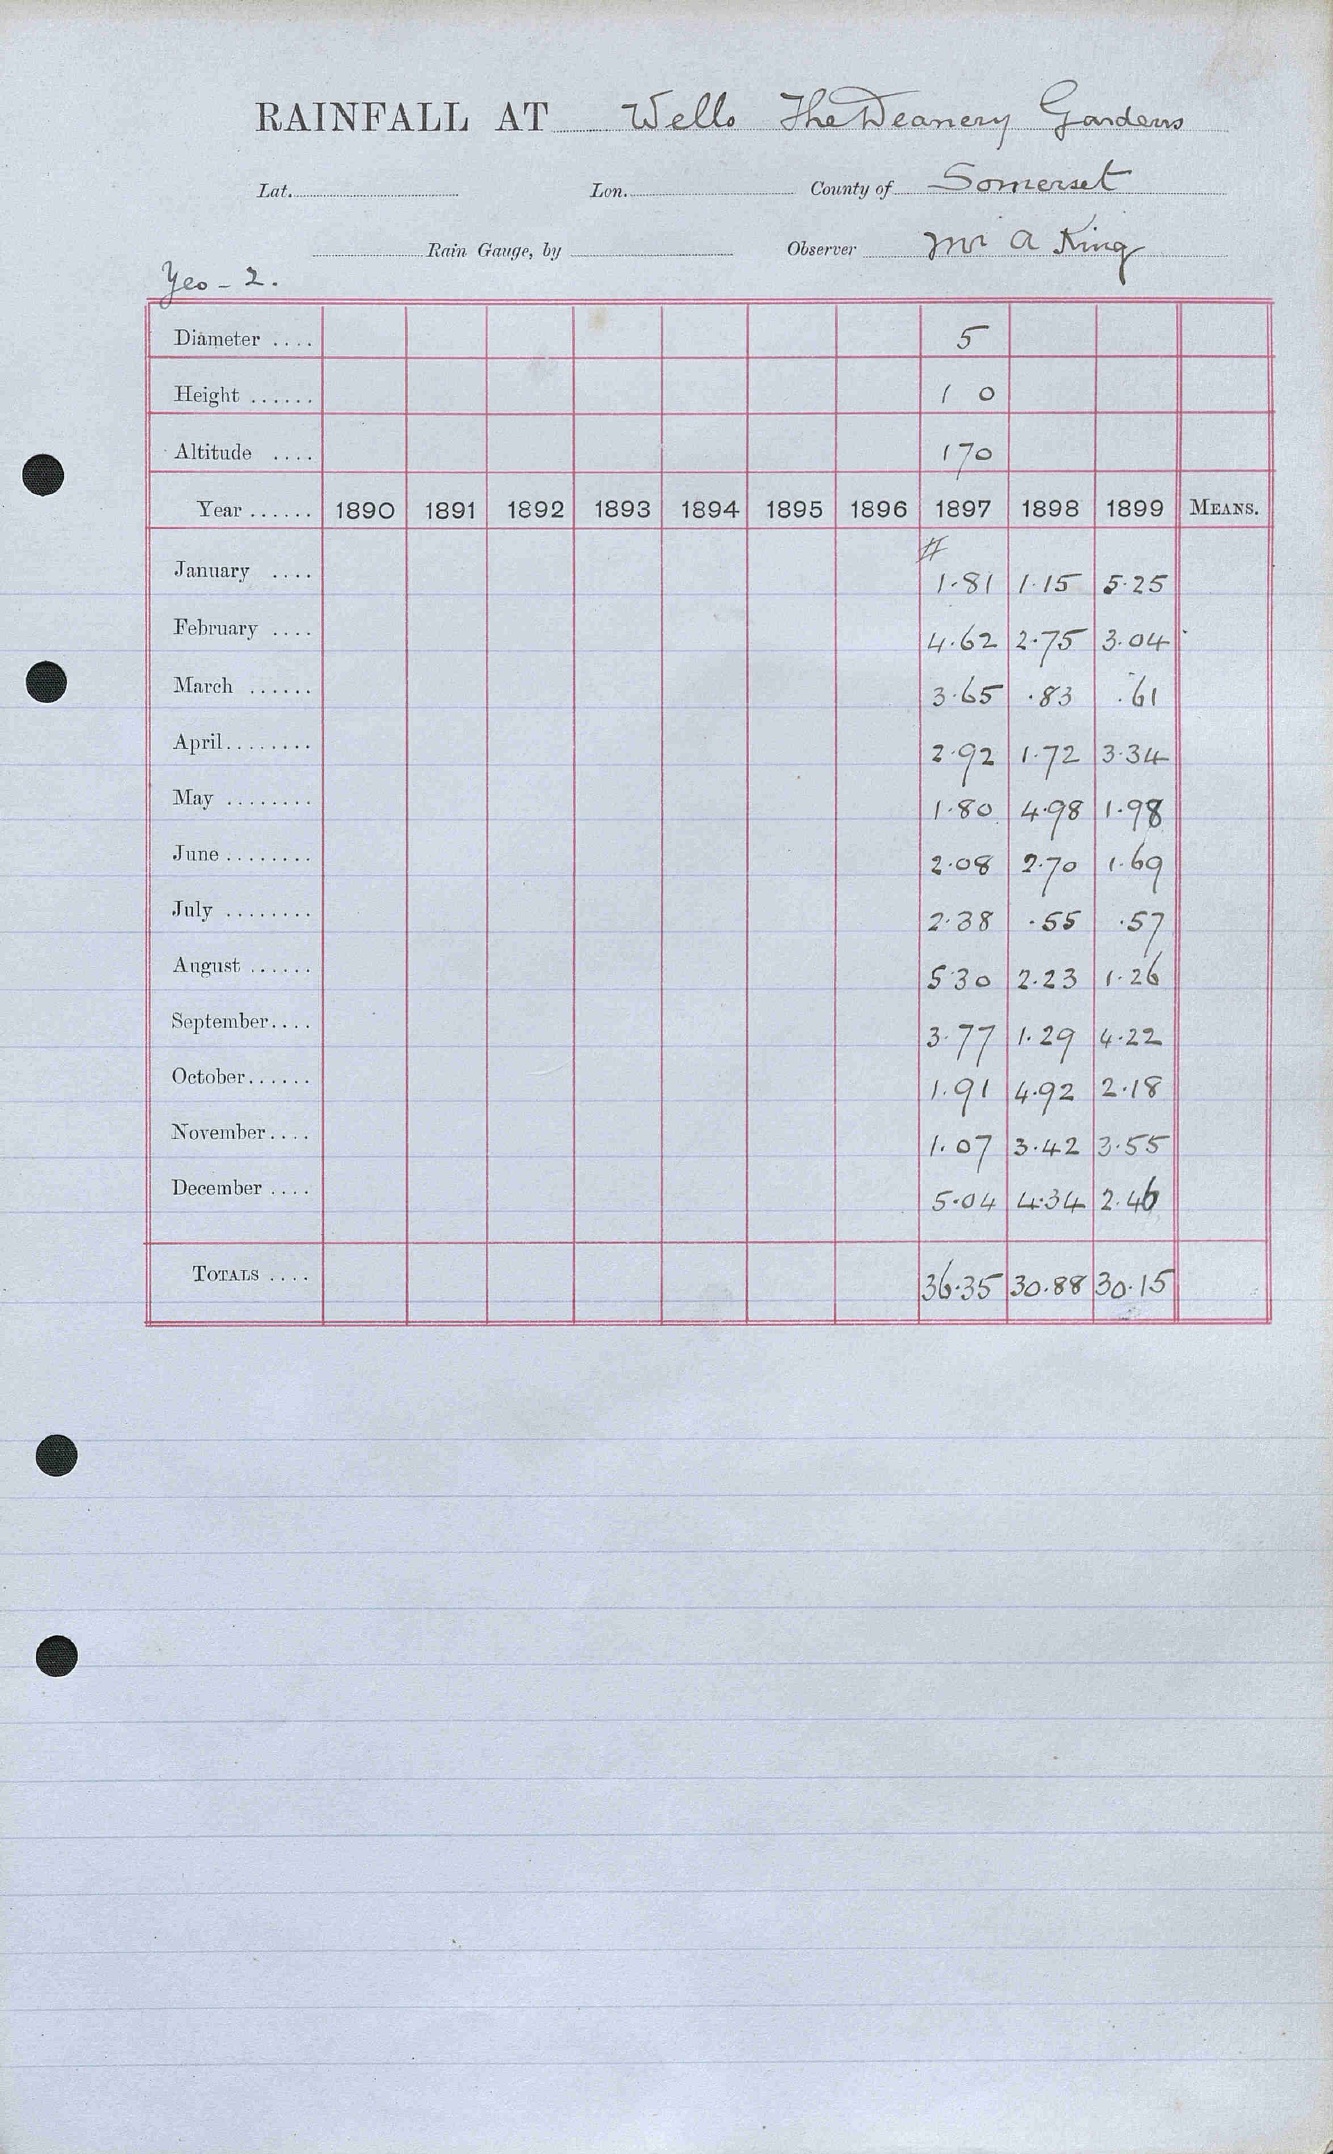 RAINFALL AT Wells The Deanery Gardens
Lat. Lon. County of Somerset
Rain Gauge, by Observer Mr A King
Yeo - 2.
Diameter .... 5
Height ...... 1 0
Altitude .... 170
Year ...... 1890 1891 1892 1893 1894 1895 1896 1897 1898 1899 MEANS.
#
January .... 1.81 1.15 5.25
February .... 4.62 2.75 3.04
March ...... 3.65 .83 .61
April........ 2.92 1.72 3.34
May ........ 1.80 4.98 1.98
June ........ 2.08 2.70 1.69
July ........ 2.38 .55 .57
August ...... 5.30 2.23 1.26
September.... 3.77 1.29 4.22
October...... 1.91 4.92 2.18
November.... 1.07 3.42 3.55
December .... 5.04 4.34 2.46
TOTALS .... 36.35 30.88 30.15